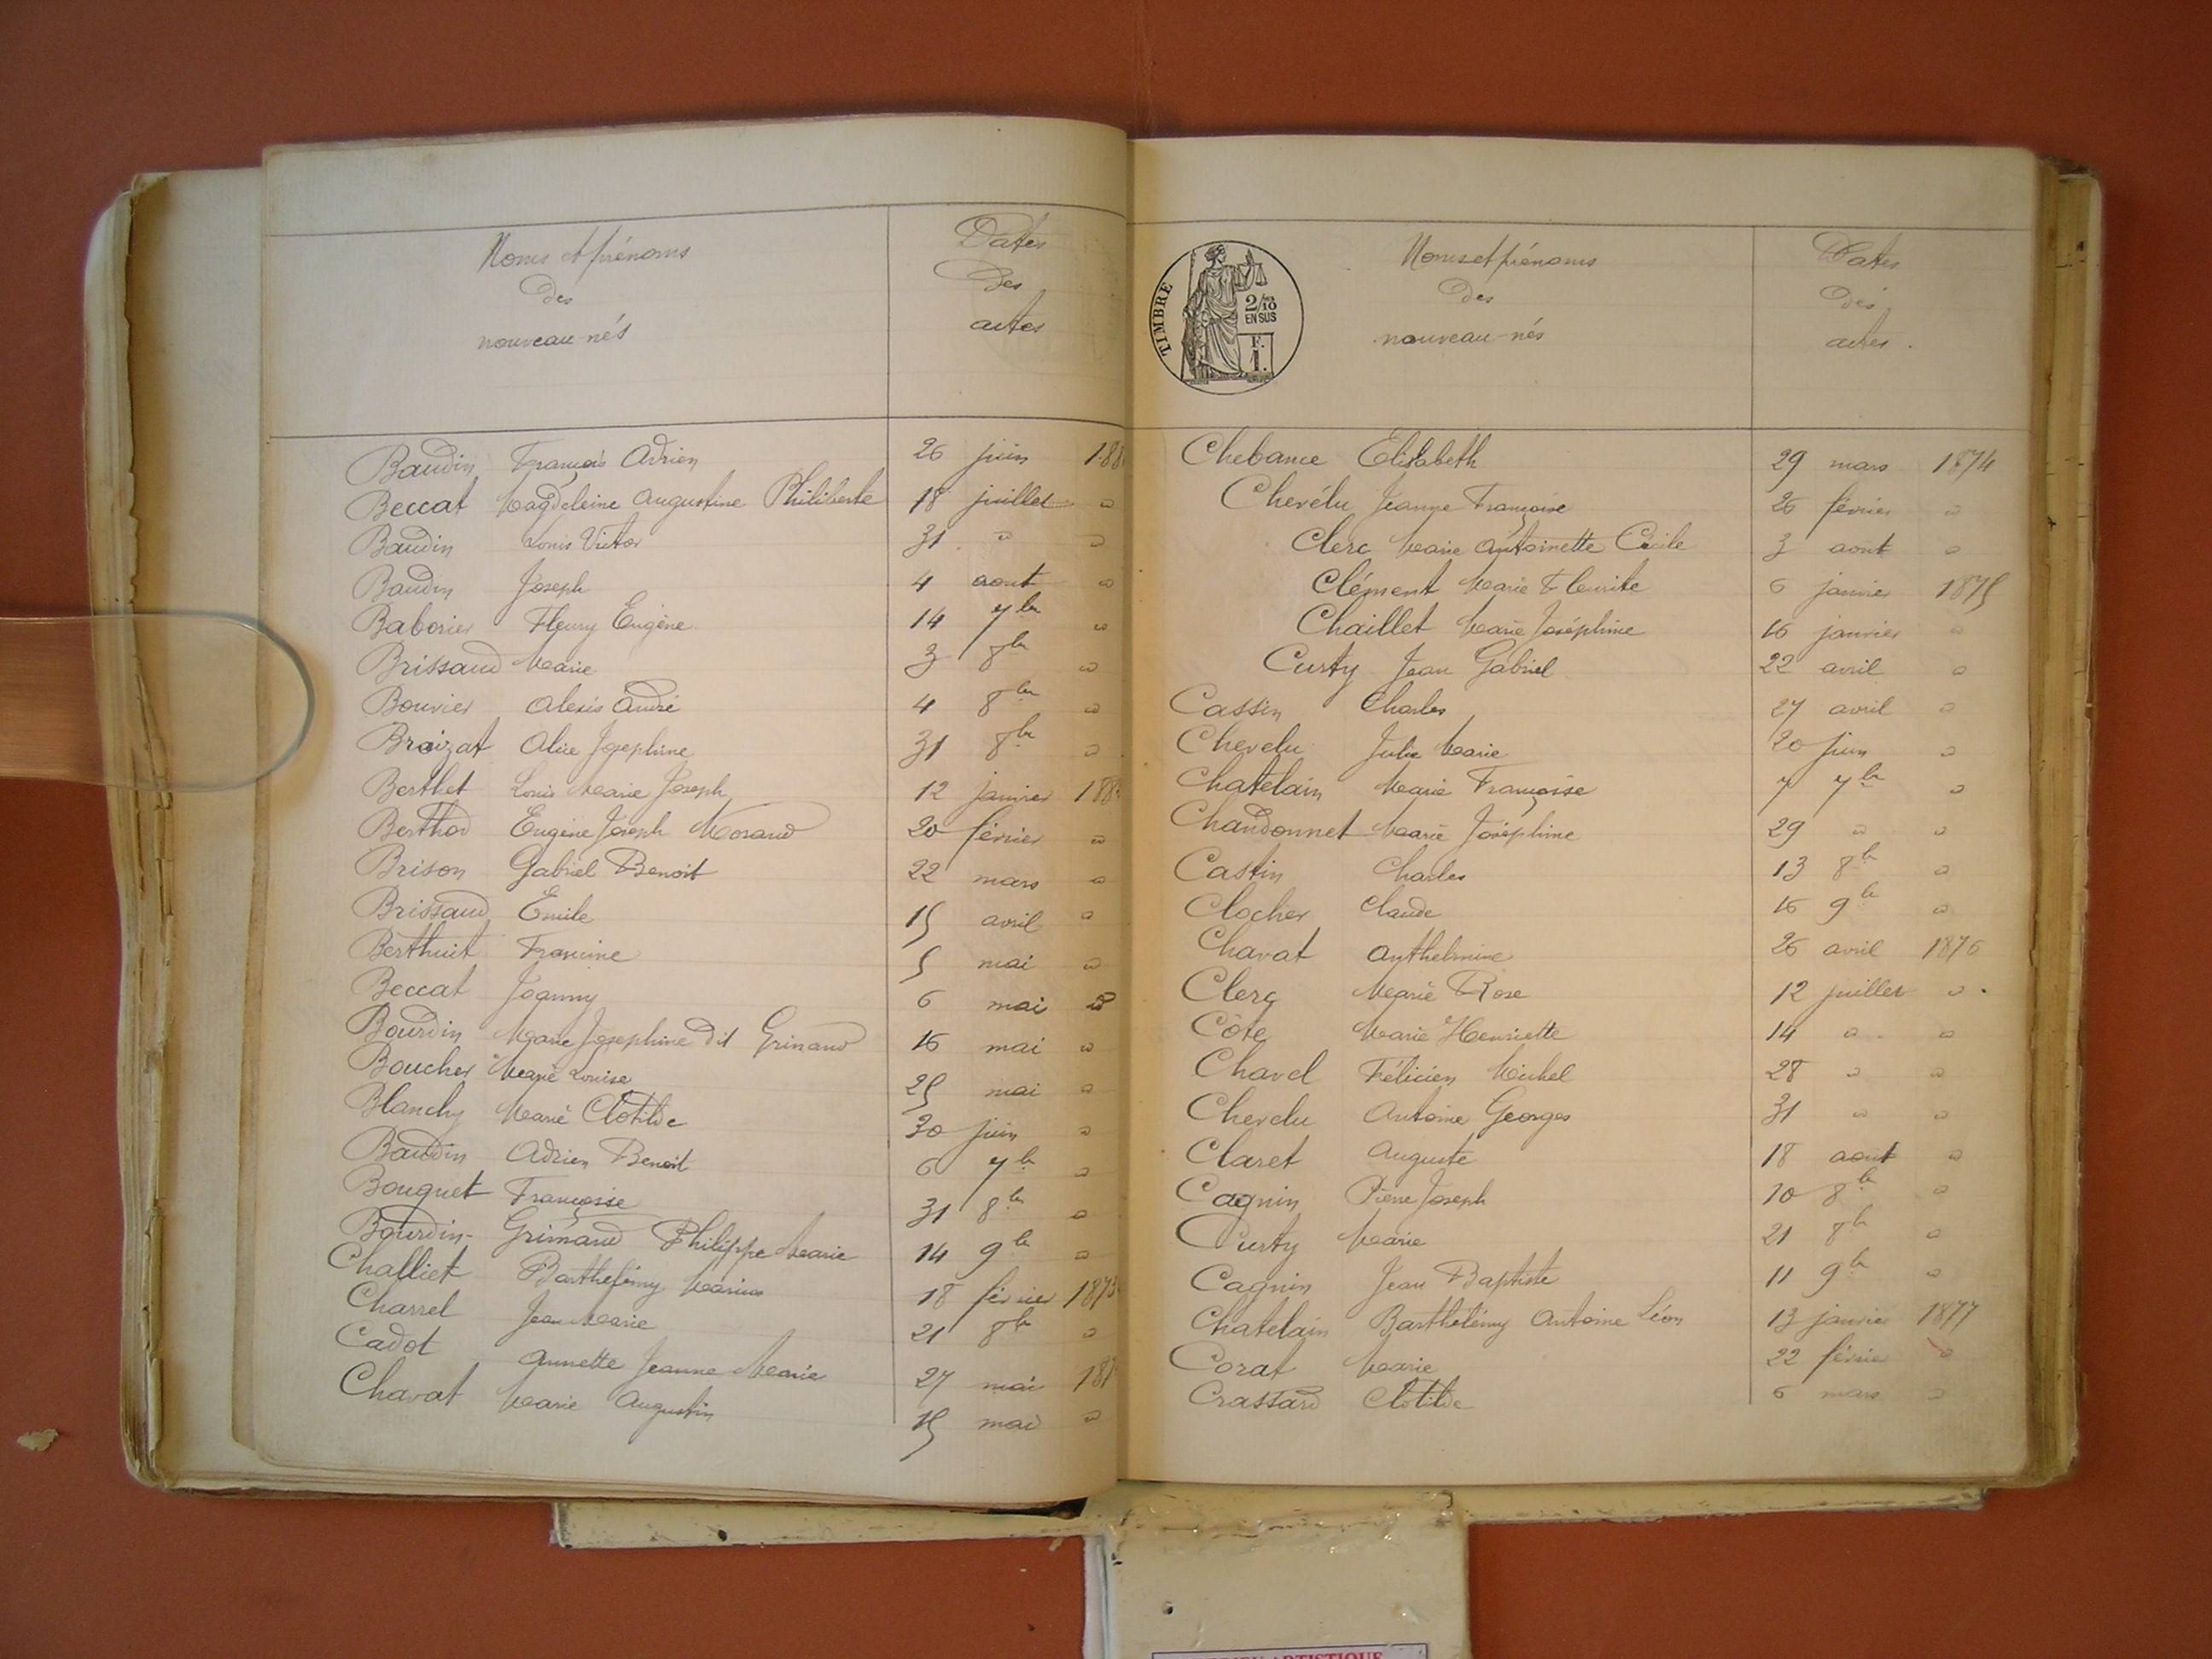 Noms et prénoms
des
nouveau-nés
Dates
des
actes
Baudin François Adrien 26 juin 188
Beccat Magdeleine Augustine Philiberte 18 juillet "
Baudin Louis Victor 31 " "
Baudin Joseph 4 aout "
Baborier Fleury Eugène 14 7bre "
Brissaud Marie 3 8bre "
Bouvier Alexis André 4 8bre "
Broizat Alice Josephine 31 8bre "
Berthet Louis Marie Joseph 12 janvier 188
Berthod Eugène Joseph Morand 20 février "
Brison Gabriel Benoit 22 mars "
Brissaud Emile 15 avril "
Berthuit Francine 5 mai "
Beccat Joanny 6 mai "
Bourdin Marie Josephine dit Grimaud 16 mai "
Boucher Marie Louise 25 mai "
Blanchy Marie Clotilde 30 juin "
Baudin Adrien Benoit 6 7bre "
Bouquet Françoise 31 8bre "
Bourdin-Grimaud Philippe Marie 14 9bre "
Challiet Barthelémy Marius 18 février 1873
Charrel Jean Marie 21 8bre "
Cadot Annette Jeanne Marie 27 mai 187
Chavat Marie Augustin 15 mai "
TIMBRE
2/10
EN SUS
F.
1.
Noms et prénoms
des
nouveau-nés
Dates
des
actes.
Chebance Elisabeth 29 mars 1874
Chevélu Jeanne Françoise 26 février "
Clerc Marie Antoinette Cécile 3 aout "
Clément Marie Fleurite 6 janvier 1875
Chaillet Marie Joséphine 16 janvier "
Curty Jean Gabriel 22 avril "
Cassin Charles 27 avril "
Chevelu Julie Marie 20 juin "
Chatelain Marie Françoise 7 7bre "
Chandonnet Marie Joséphine 29 " "
Castin Charles 13 8bre "
Clocher Claude 16 9bre "
Chavat Anthelmine 26 avril 1876
Clerc Marie Rose 12 juillet "
Côte Marie Henriette 14 " "
Chavel Félicien Michel 28 " "
Chevelu Antoine Georges 31 " "
Claret Auguste 18 aout "
Cagnin Pierre Joseph 10 8bre "
Curty Marie 21 8bre "
Cagnin Jean Baptiste 11 9bre "
Chatelain Barthélémy Antoine Léon 13 janvier 1877
Corat Marie 22 février "
Crassard Clotilde 6 mars "